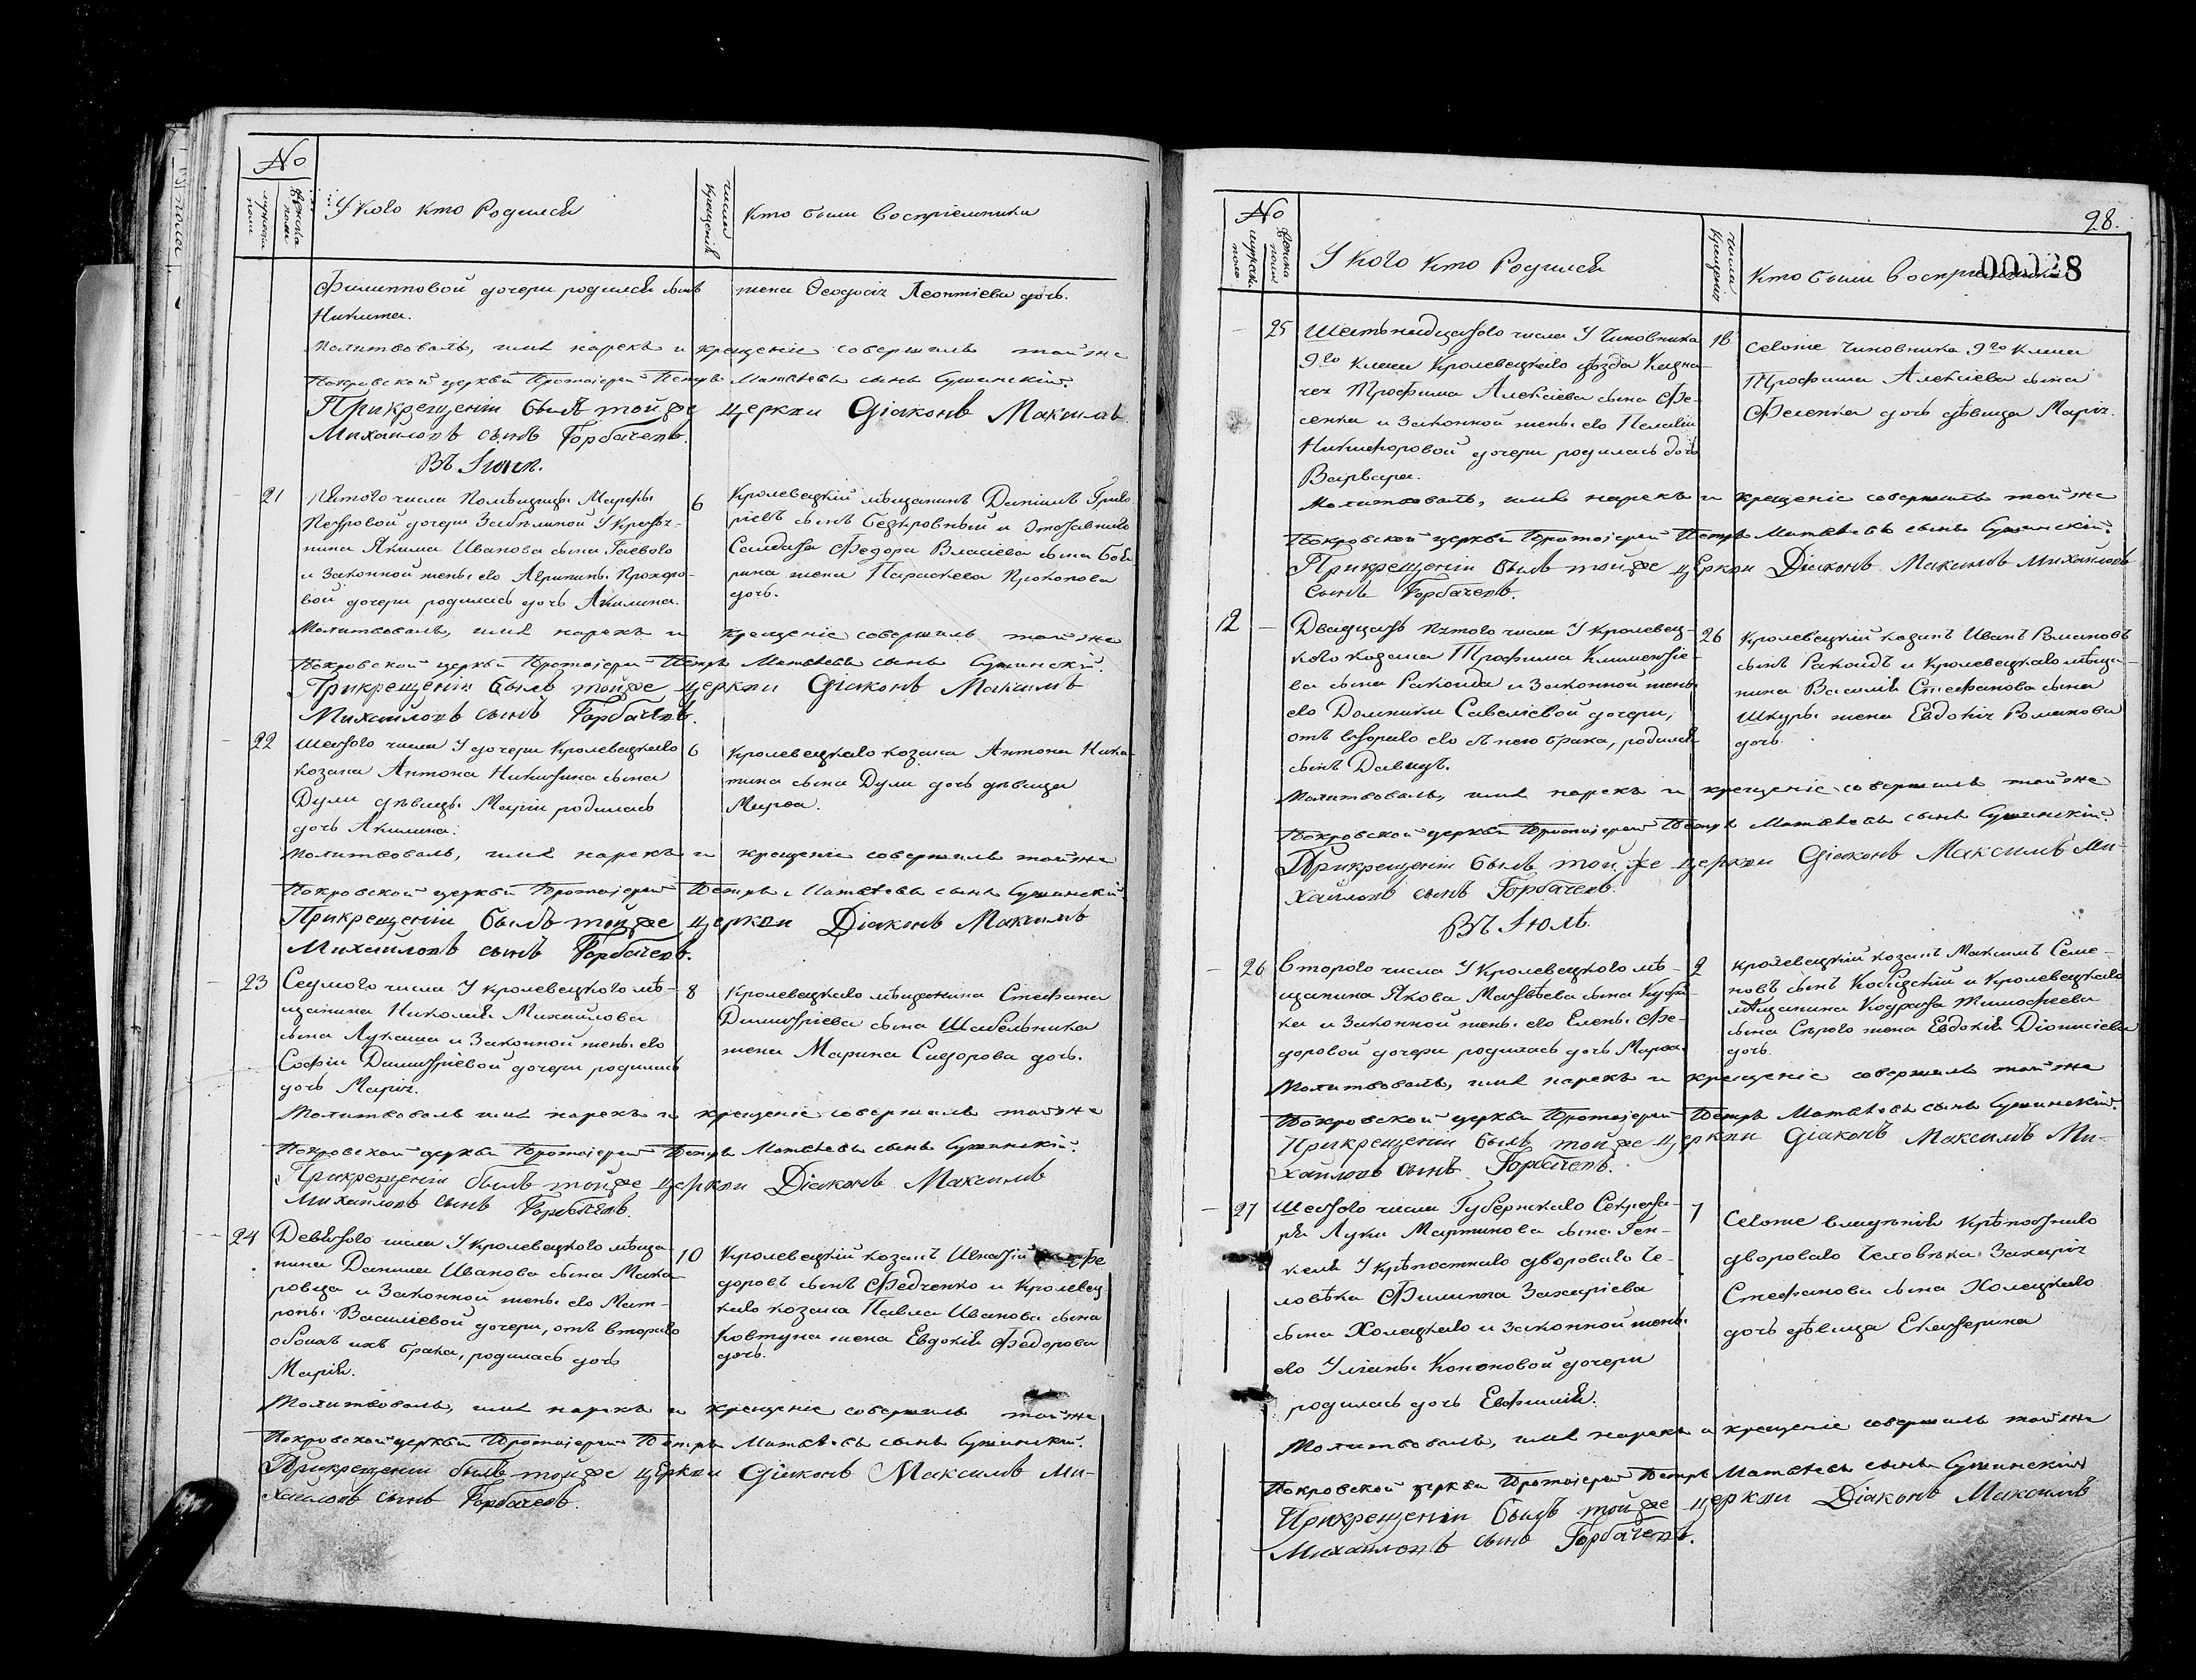 No
мужеска пола
женска пола
У кого кто Родился
число крещенія
Кто были воспріемники
Филипповой дочери родился сынъ
Никита.
жена Ѳеодосія Леонтіева дочь.
Молитвовалъ, имя нарекъ и крещеніе совершилъ тойже
Покровской церкви Протоіерей Петръ Матвѣевъ сынъ Сушинскій.
При крещеніи былъ тойже церкви Діаконъ Максимъ
Михайловъ сынъ Горбачевъ.
Въ Іюнѣ.
21
Пятого числа Помѣщицы Марѳы
Петровой дочери Забѣлиной У крестья-
нина Якима Иванова сына Гаевого
и Законной жены его Агрипины Прохоро-
вой дочери родилась дочь Акилина.
6
Кролевецкій мѣщанинъ Даніилъ Григо
ріевъ сынъ Безкровный и Отставнаго
Солдата Федора Власіева сына Бою
рина жена Параскева Прокопова
дочь.
Молитвовалъ, имя нарекъ и крещеніе совершилъ тойже
Покровской церкви Протоіерей Петръ Матвѣевъ сынъ Сушинскій.
При крещеніи былъ тойже церкви Діаконъ Максимъ
Михайловъ сынъ Горбачевъ.
22
Шестого числа У дочери Кролевецкаго
козака Антона Никитина сына
Дули дѣвицы Маріи родилась
дочь Акилина.
6
Кролевецкаго козака Антона Ники-
тина сына Дули дочь дѣвица
Марѳа.
Молитвовалъ, имя нарекъ и крещеніе совершилъ тойже
Покровской церкви Протоіерей Петръ Матвѣевъ сынъ Сушинскій.
При крещеніи былъ тойже церкви Діаконъ Максимъ
Михайловъ сынъ Горбачевъ.
23
Седмого числа У кролевецкого мѣ-
щанина Николая Михайлова
сына Лукаша и Законной жены его
Софіи Димитріевой дочери родилась
дочь Марія.
8
Кролевецкаго мѣщанина Стефана
Димитріева сына Шабельника
жена Марина Сидорова дочь.
Молитвовалъ имя нарекъ и крещеніе совершилъ тойже
Покровской церкви Протоіерей Петръ Матвѣевъ сынъ Сушинскій.
При крещеніи былъ тойже церкви Діаконъ Максимъ
Михайловъ сынъ Горбачевъ.
24
Девятого числа У кролевецкого мѣща-
нина Данила Иванова сына Мака-
ровца и Законной жены его Мат-
роны Василіевой дочери, отъ втораго
обоихъ ихъ брака, родилась дочь
Марія.
10
Кролевецкій козакъ Игнатій Фе
доровъ сынъ Федченко и Кролевец
каго козака Павла Иванова сына
Ковтуна жена Евдокія Федорова
дочь.
Молитвовалъ, имя нарекъ и крещеніе совершилъ тойже
Покровской церкви Протоіерей Петръ Матвѣевъ сынъ Сушинскій.
При крещеніи былъ тойже церкви Діаконъ Максимъ Ми-
хайловъ сынъ Горбачевъ.
28.
00028
No
мужеска пола
женска пола
У кого кто Родился
число крещенія
Кто были воспріемники
25
Шестьнадцатого числа У Чиновника
9го класа Кролевецкаго уѣзда Казна-
чея Трофима Алексіева сына Фе-
сенка и Законной жены его Пелагіи
Никифоровой дочери родилась дочь
Варвара.
16
Селоте Чиновника 9го класа
Трофима Алексіева сына
Фесенка дочь дѣвица Марія.
Молитвовалъ, имя нарекъ и крещеніе совершилъ тойже
Покровской церкви Протоіерей Петръ Матвѣевъ сынъ Сушинскій.
При крещеніи былъ тойже церкви Діаконъ Максимъ Михайловъ
сынъ Горбачевъ.
12
Двадцать пятого числа У Кролевец-
кого козака Трофима Климентіе-
ва сына Ракоида и Законной жены
его Домникіи Савеліевой дочери,
отъ втораго его съ нею брака, родился
сынъ Давидъ.
26
Кролевецкій козакъ Иванъ Романовъ
сынъ Ракоидъ и Кролевецкаго мѣща-
нина Василія Стефанова сына
Шкуры жена Евдокія Романова
дочь.
Молитвовалъ, имя нарекъ и крещеніе совершилъ тойже
Покровской церкви Протоіерей Петръ Матвѣевъ сынъ Сушинскій.
При крещеніи былъ тойже церкви Діаконъ Максимъ Ми-
хайловъ сынъ Горбачевъ.
Въ Іюлѣ.
26
Второго числа У Кролевецкого мѣ-
щанина Якова Матвѣева сына
и Законной жены его Елены Фе-
доровой дочери родилась дочь Марѳа.
2
Кролевецкій козакъ Максимъ Семе-
новъ сынъ и Кролевецкаго
мѣщанина Кодрата Тимофеева
сына Сѣрого жена Евдокія Діонисіева
дочь.
Молитвовалъ, имя нарекъ и крещеніе совершилъ тойже
Покровской церкви Протоіерей Петръ Матвѣевъ сынъ Сушинскій.
При крещеніи былъ тойже церкви Діаконъ Максимъ Ми-
хайловъ сынъ Горбачевъ.
27
Шестого числа Губернскаго Секрета-
ря Луки Мартинова сына Ген-
келя У крѣпостнаго двороваго Че-
ловѣка Филиппа Захаріева
сына Холецкаго и Законной жены
его Уліаны Кононовой дочери
родилась дочь Евфимія.
7
Селоте владѣнія крѣпостнаго
двороваго Человѣка Захарія
Стефанова сына Холецкаго
дочь дѣвица Екатерина
Молитвовалъ, имя нарекъ и крещеніе совершилъ тойже
Покровской церкви Протоіерей Петръ Матвѣевъ сынъ Сушинскій
При крещеніи былъ тойже церкви Діаконъ Максимъ
Михайловъ сынъ Горбачевъ.